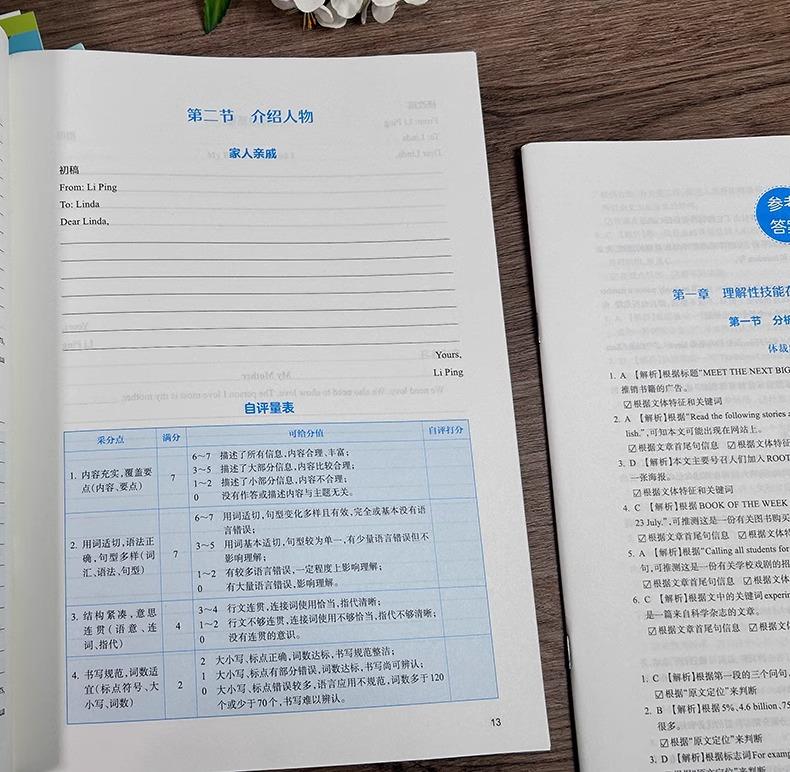 第二节 介绍人物
家人亲戚
初稿
From: Li Ping
To: Linda
Dear Linda,
Yours,
Li Ping
自评量表
采分点 满分 可给分值 自评打分
1. 内容充实,覆盖要点(内容、要点) 7
6～7 描述了所有信息,内容合理、丰富;
3～5 描述了大部分信息,内容比较合理;
1～2 描述了小部分信息,内容不合理;
0 没有作答或描述内容与主题无关。
2. 用词适切,语法正确,句型多样(词汇、语法、句型) 7
6～7 用词适切,句型变化多样且有效,完全或基本没有语
言错误;
3～5 用词基本适切,句型较为单一,有少量语言错误但不
影响理解;
1～2 有较多语言错误,一定程度上影响理解;
0 有大量语言错误,影响理解。
3. 结构紧凑,意思连贯(语意、连词、指代) 4
3～4 行文连贯,连接词使用恰当,指代清晰;
1～2 行文不够连贯,连接词使用不够恰当,指代不够清晰;
0 没有连贯的意识。
4. 书写规范,词数适宜(标点符号、大小写、词数) 2
2 大小写、标点正确,词数达标,书写规范整洁;
1 大小写、标点有部分错误,词数达标,书写尚可辨认;
0 大小写、标点错误较多,语言应用不规范,词数多于120
个或少于70个,书写难以辨认。
13
参考
答案
第一章 理解性技能在
第一节 分析
体裁
1. A 【解析】根据标题“MEET THE NEXT BIG
推销书籍的广告。
☑根据文体特征和关键词
2. A 【解析】根据“Read the following stories a
lish.”,可知本文可能出现在网站上。
☑根据文章首尾句信息 ☑根据文体特征
3. D 【解析】本文主要号召人们加入 ROOT
一张海报。
☑根据文体特征和关键词
4. C 【解析】根据 BOOK OF THE WEEK
23 July.”,可推测这是一份有关图书购买
☑根据文章首尾句信息 ☑根据文体特
5. A 【解析】根据“Calling all students for
句,可推测这是一份有关学校戏剧的招
☑根据文章首尾句信息 ☑根据文体
6. C 【解析】根据文中的关键词 experim
是一篇来自科学杂志的文章。
☑根据文章首尾句信息 ☑根据文体
1. C 【解析】根据第一段的三个问句,
☑根据“原文定位”来判断
2. B 【解析】根据 5%、4.6 billion、75
很多。
☑根据“原文定位”来判断
3. D 【解析】根据标志词For example
☑根据“原文定位”来判断